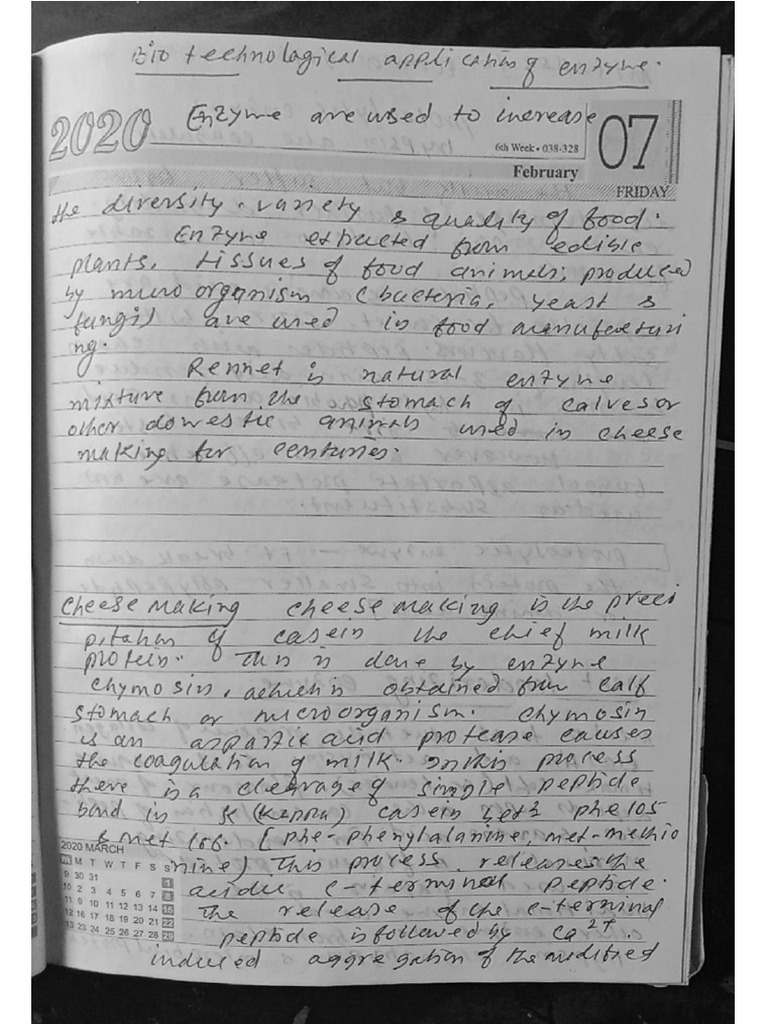 Bio technological application of enzyme.
2020
Enzyme are used to increase
6th Week • 038-328
07
February
FRIDAY
the diversity, variety & quality of food.
Enzyme extracted from edible
plants, tissues of food animals, produced
by micro organism (bacteria, yeast &
fungi) are used in food manufacturi
ng.
Rennet is natural enzyme
mixture from the stomach of calves or
other domestic animals used in cheese
making for centuries.
Cheese Making cheese making is the preci
pitation of casein the chief milk
protein. This is done by enzyme
chymosin, which is obtained from calf
stomach or microorganism. Chymosin
is an aspartic acid protease causes
the coagulation of milk. In this process
there is a cleavage of single peptide
bond in K (Kappa) casein betn phe 105
& met 106. [phe-phenylalanine, met-methio
nine) This process releases the
acidic C-terminal peptide.
The release of the C-terminal
peptide is followed by Ca2+
induced aggregation of the modified
2020 MARCH
M T W T F S S
9 30 31 1
10 2 3 4 5 6 7 8
11 9 10 11 12 13 14 15
12 16 17 18 19 20 21 22
13 23 24 25 26 27 28 29